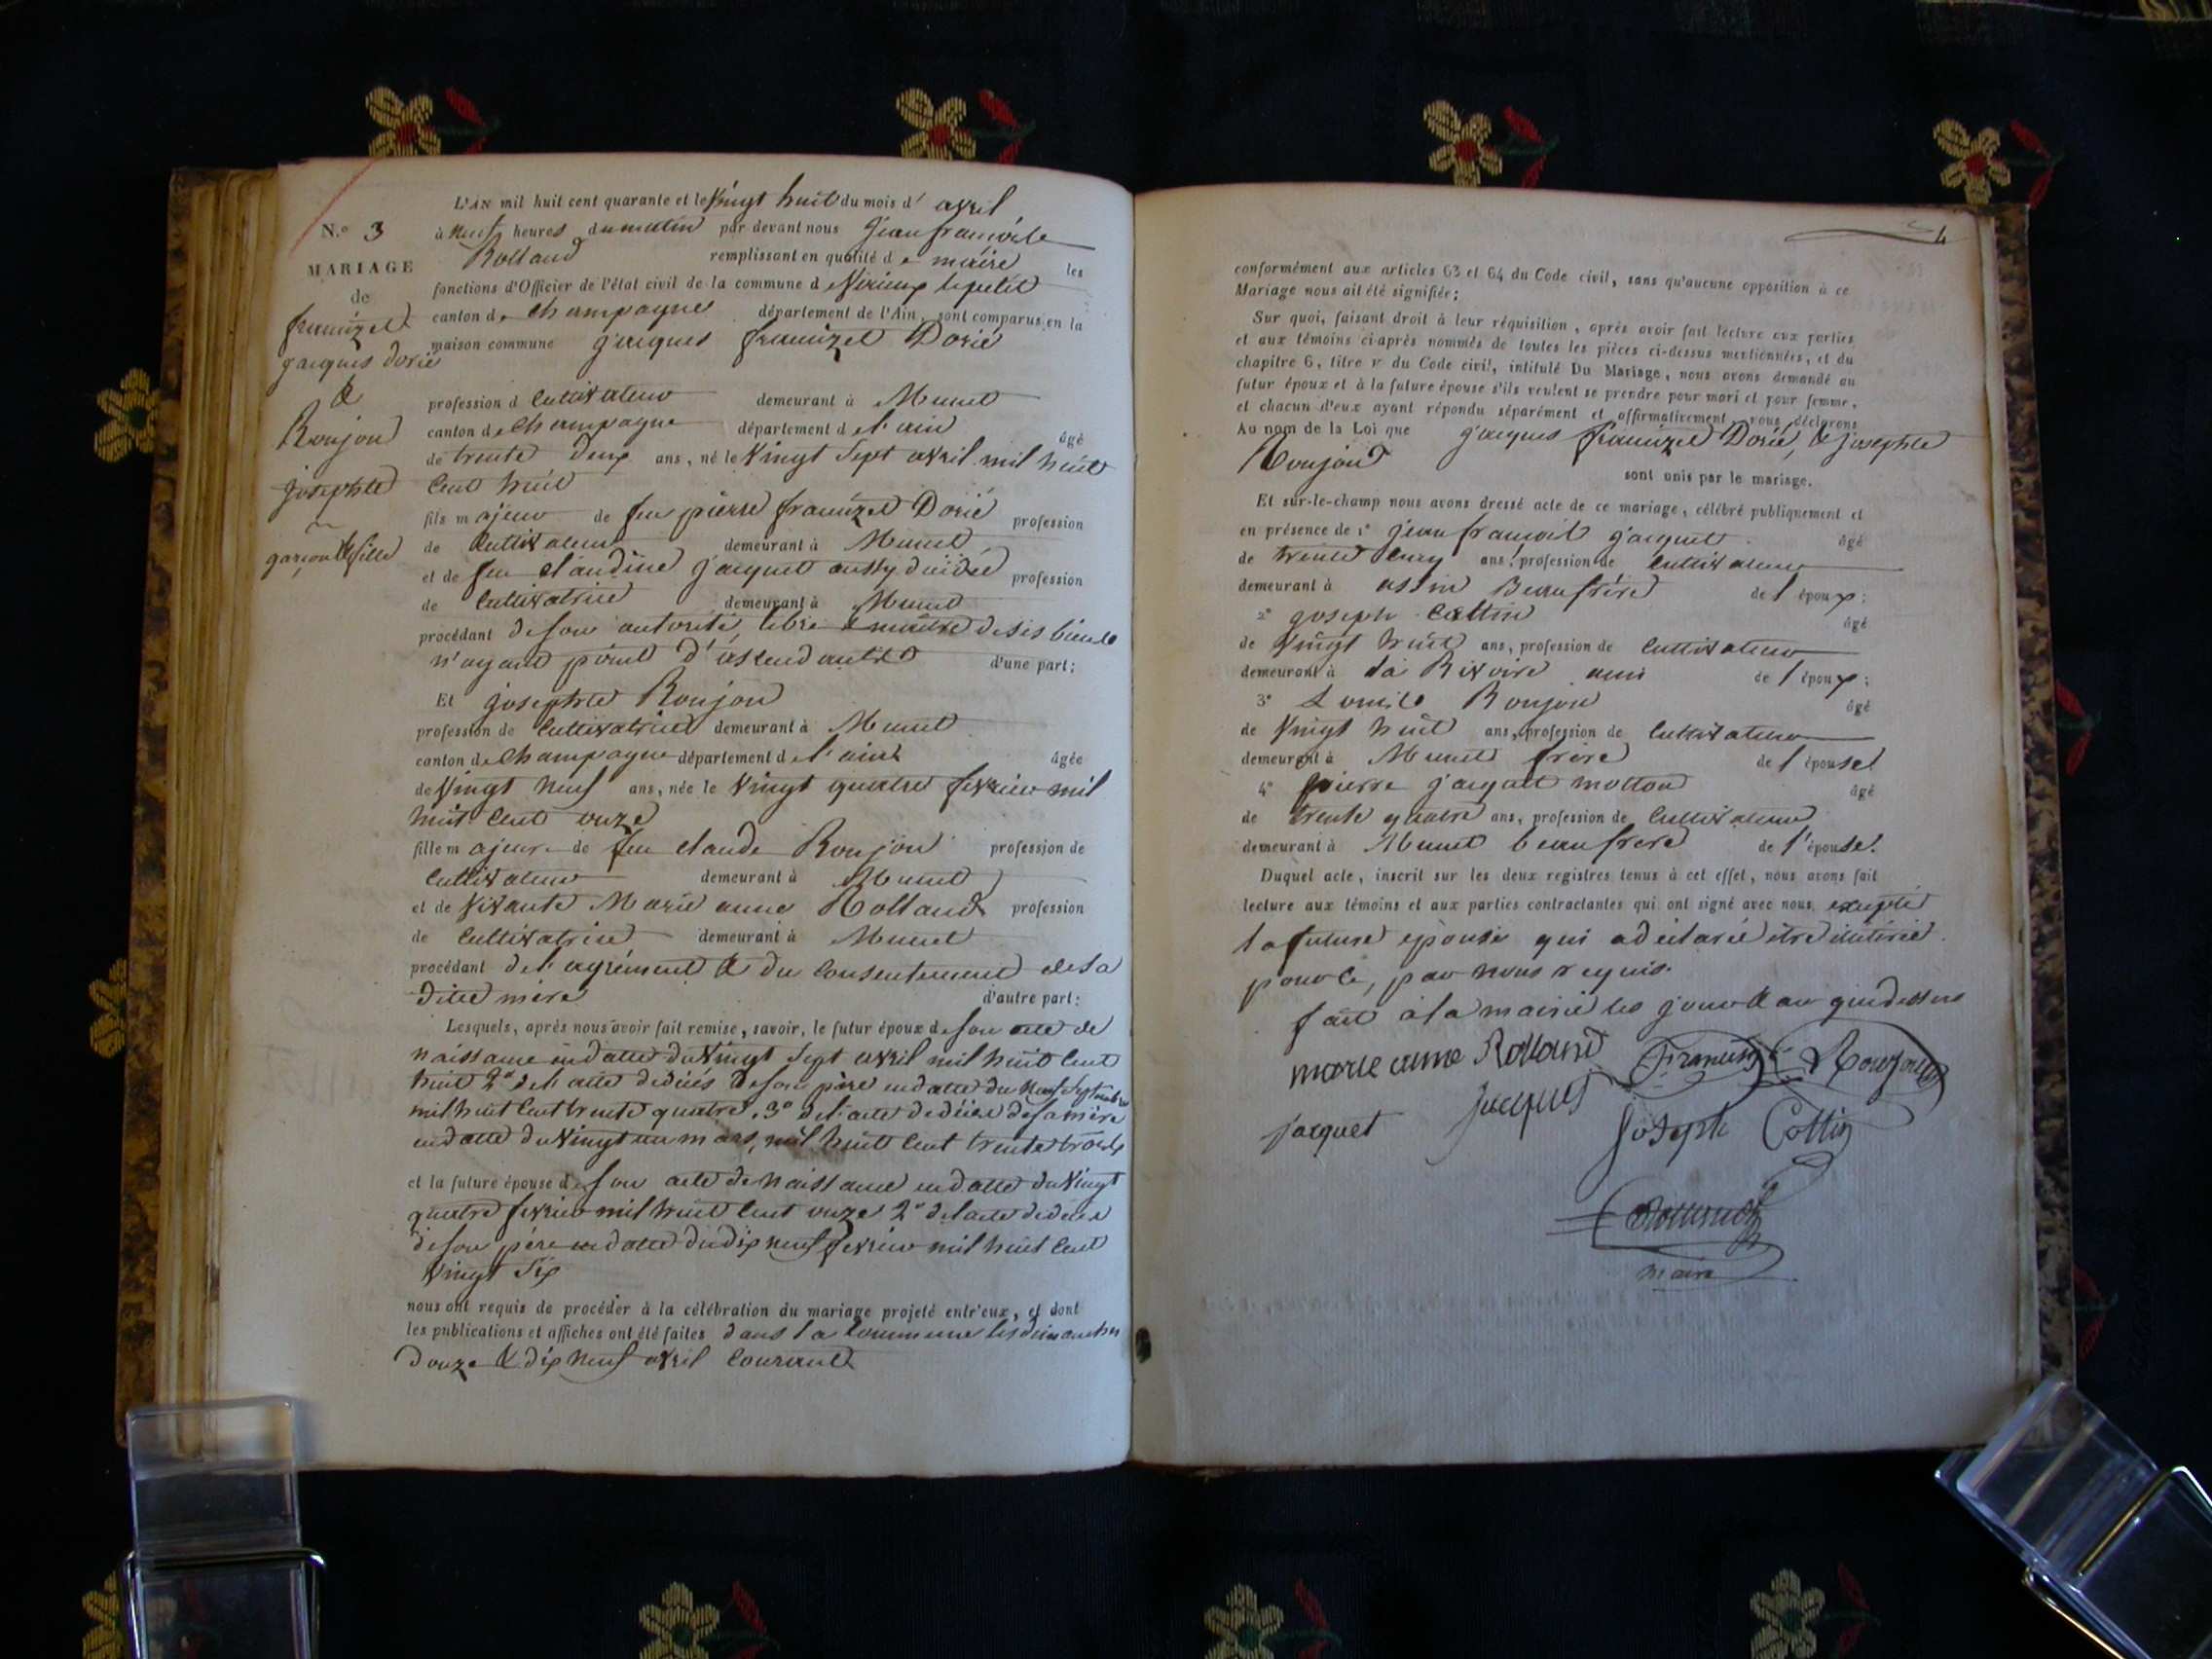 N.o 3
MARIAGE
de
francizet
jacques dorié
&
Roujon
josephte
garçon & fille
L'AN mil huit cent quarante et le vingt huit du mois d' avril
à neuf heures du matin par devant nous jean françois
Rolland remplissant en qualité de maire les
fonctions d'Officier de l'état civil de la commune de Virieux le petit
canton de Champagne département de l'Ain, sont comparus en la
maison commune jacques francizet Dorié
profession d cultivateur demeurant à Munet
canton de Champagne département de l'ain âgé
de trente deux ans, né le vingt sept avril mil huit
cent huit
fils majeur de feu pierre francizet Dorié profession
de cultivateur demeurant à Munet
et de feu claudine jacquet aussy décédée profession
de cultivatrice demeurant à Munet
procédant de son autorité, libre & maitre de ses biens
n'ayant point d'ascendants d'une part;
Et josephte Roujon
profession de cultivatrice demeurant à Munet
canton de Champagne département de l'ain âgée
de vingt neuf ans, née le vingt quatre fevrier mil
huit cent onze
fille majeure de feu claude Roujon profession de
cultivateur demeurant à Munet
et de vivante Marie anne Rolland profession
de cultivatrice demeurant à Munet
procédant de l'agrément & du consentement de sa
dite mère d'autre part:
Lesquels, après nous avoir fait remise, savoir, le futur époux de son acte de
naissance en datte du vingt sept avril mil huit cent
huit 2° de l'acte de décès de son père en datte du neuf septembre
mil huit cent trente quatre, 3° de l'acte de décès de sa mère
en datte du vingt un mars, mil huit cent trente trois
et la future épouse de son acte de naissance en datte du vingt
quatre fevrier mil huit cent onze 2° de l'acte de décès
de son père en datte du dix neuf fevrier mil huit cent
vingt six
nous ont requis de procéder à la célébration du mariage projeté entr'eux, et dont
les publications et affiches ont été faites dans la commune les dimanches
douze & dix neuf avril courant
4
conformément aux articles 63 et 64 du Code civil, sans qu'aucune opposition à ce
Mariage nous ait été signifiée;
Sur quoi, faisant droit à leur réquisition, après avoir fait lecture aux parties
et aux témoins ci-après nommés de toutes les pièces ci-dessus mentionnées, et du
chapitre 6, titre v du Code civil, intitulé Du Mariage, nous avons demandé au
futur époux et à la future épouse s'ils veulent se prendre pour mari et pour femme,
et chacun d'eux ayant répondu séparément et affirmativement, nous déclarons
Au nom de la Loi que jacques francizet Dorié, & josephte
Roujon sont unis par le mariage.
Et sur-le-champ nous avons dressé acte de ce mariage, célébré publiquement et
en présence de 1° jean françois jacquet âgé
de trente ans, profession de cultivateur
demeurant à assin Beaufrère de l'époux:
2° joseph Cottin âgé
de vingt huit ans, profession de cultivateur
demeurant à la Rivoire ami de l'époux;
3° Louis Roujon âgé
de vingt huit ans, profession de cultivateur
demeurant à Munet frère de l'épouse
4° pierre jacquet motton âgé
de trente quatre ans, profession de cultivateur
demeurant à Munet beaufrere de l'épouse.
Duquel acte, inscrit sur les deux registres tenus à cet effet, nous avons fait
lecture aux témoins et aux parties contractantes qui ont signé avec nous excepté
la future epouse qui a déclaré être illitérée
pour ce, par nous requis.
fait à la mairie les jour & an que dessus
marie anne Rolland Francizet Roujon
jacquet jacques joseph Cottin
maire